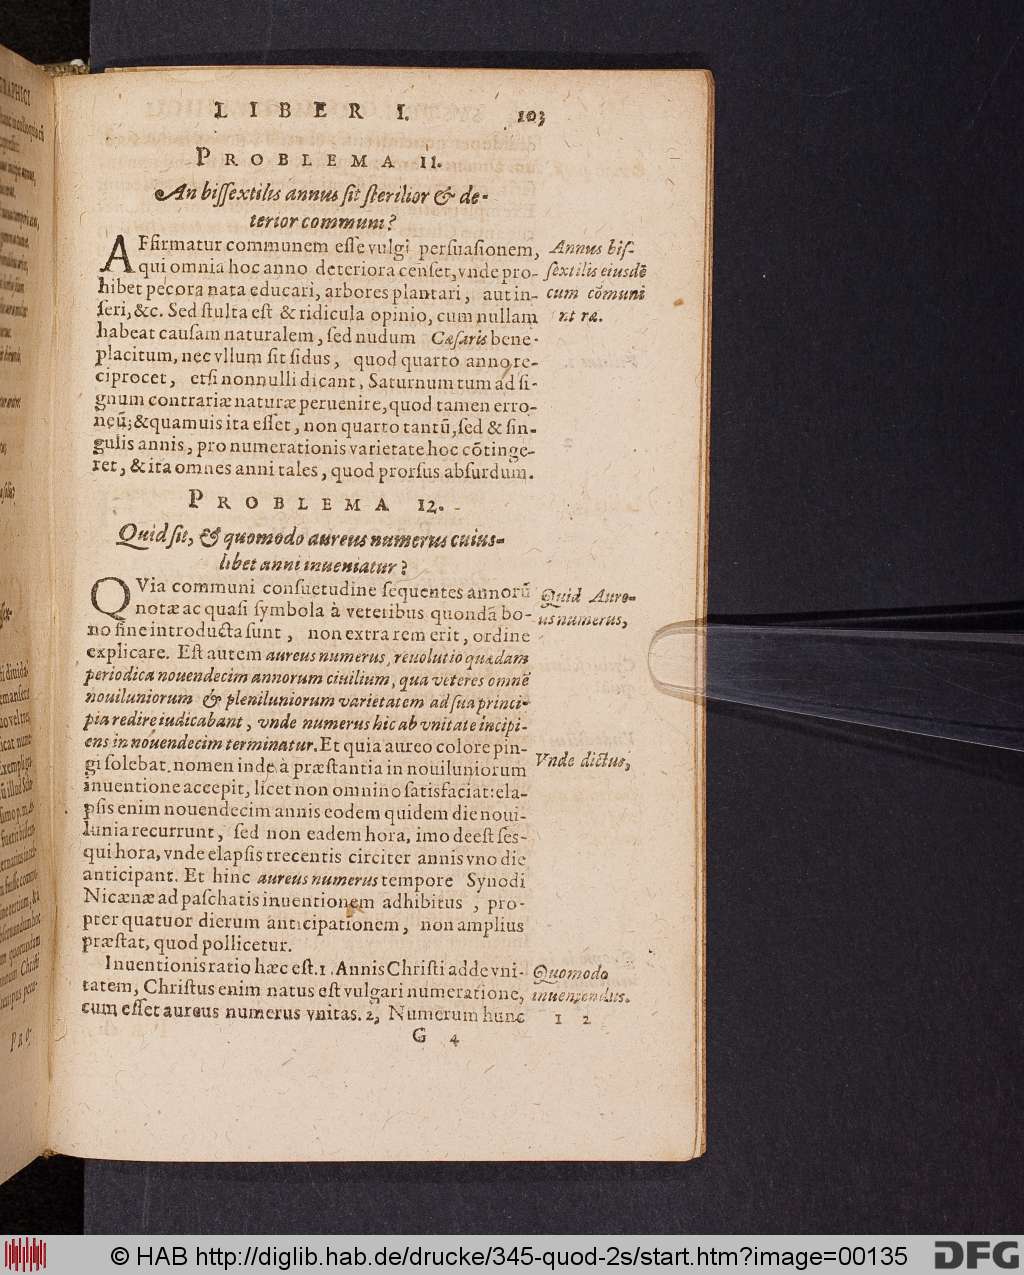 LIBER I. 103
PROBLEMA 11.
An bissextilis annus sit sterilior & de-
terior communi?
AFfirmatur communem esse vulgi persuasionem,
qui omnia hoc anno deteriora censet, vnde pro-
hibet pecora nata educari, arbores plantari, aut in-
seri, &c. Sed stulta est & ridicula opinio, cum nullam
habeat causam naturalem, sed nudum Cæsaris bene-
placitum, nec vllum sit sidus, quod quarto anno re-
ciprocet, etsi nonnulli dicant, Saturnum tum ad si-
gnum contrariæ naturæ peruenire, quod tamen erro-
neũ; & quamuis ita esset, non quarto tantũ, sed & sin-
gulis annis, pro numerationis varietate hoc cõtinge-
ret, & ita omnes anni tales, quod prorsus absurdum.
Annus bis-
sextilis eiusdẽ
cum cõmuni
PROBLEMA 12.
Quid sit, & quomodo aureus numerus cuius-
libet anni inueniatur?
QVia communi consuetudine sequentes annorũ
notæ ac quasi symbola à veteribus quondã bo-
no fine introducta sunt, non extra rem erit, ordine
explicare. Est autem aureus numerus, reuolutio quædam
periodica nouendecim annorum ciuilium, qua veteres omnẽ
nouiluniorum & pleniluniorum varietatem ad sua princi-
pia redire iudicabant, vnde numerus hic ab vnitate incipi-
ens in nouendecim terminatur. Et quia aureo colore pin-
gi solebat, nomen inde à præstantia in nouiluniorum
inuentione accepit, licet non omnino satisfaciat: ela-
psis enim nouendecim annis eodem quidem die noui-
lunia recurrunt, sed non eadem hora, imo deest ses-
qui hora, vnde elapsis trecentis circiter annis vno die
anticipant. Et hinc aureus numerus tempore Synodi
Nicænæ ad paschatis inuentionem adhibitus, pro-
pter quatuor dierum anticipationem, non amplius
præstat, quod pollicetur.
Quid Aure-
us numerus,
Vnde dictus,
Inuentionis ratio hæc est. 1. Annis Christi adde vni-
tatem, Christus enim natus est vulgari numeratione,
cum esset aureus numerus vnitas. 2, Numerum hunc
Quomodo
inueniendus.
1 2
G 4
© HAB http://diglib.hab.de/drucke/345-quod-2s/start.htm?image=00135
DFG